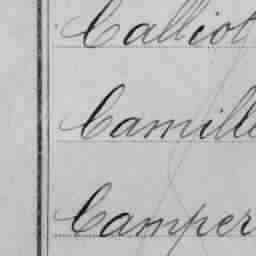 Calliot
Camille
Camper